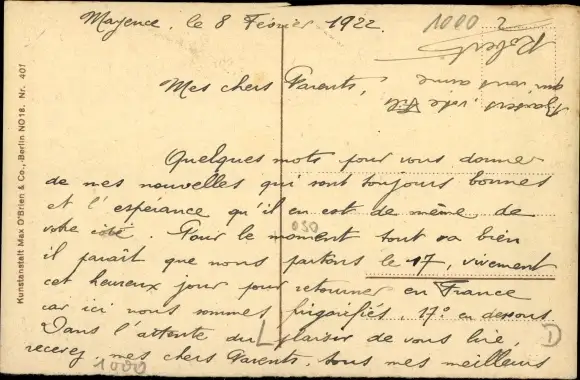 Mayence, le 8 Février 1922.
1000 2
Mes chers Parents,
Quelques mots pour vous donner
de mes nouvelles qui sont toujours bonnes
et l'espérance qu'il en est de même de
votre côté. Pour le moment tout va bien
050
il paraît que nous partons le 17, vivement
cet heureux jour pour retourner en France
car ici nous sommes frigorifiés, 17° en dessous
Dans l'attente du plaisir de vous lire,
recevez, mes chers Parents, tous mes meilleurs
Baisers, votre Fils
qui vous aime
Robert
1000
L
D
Kunstanstalt Max O'Brien & Co., Berlin NO18. Nr. 401